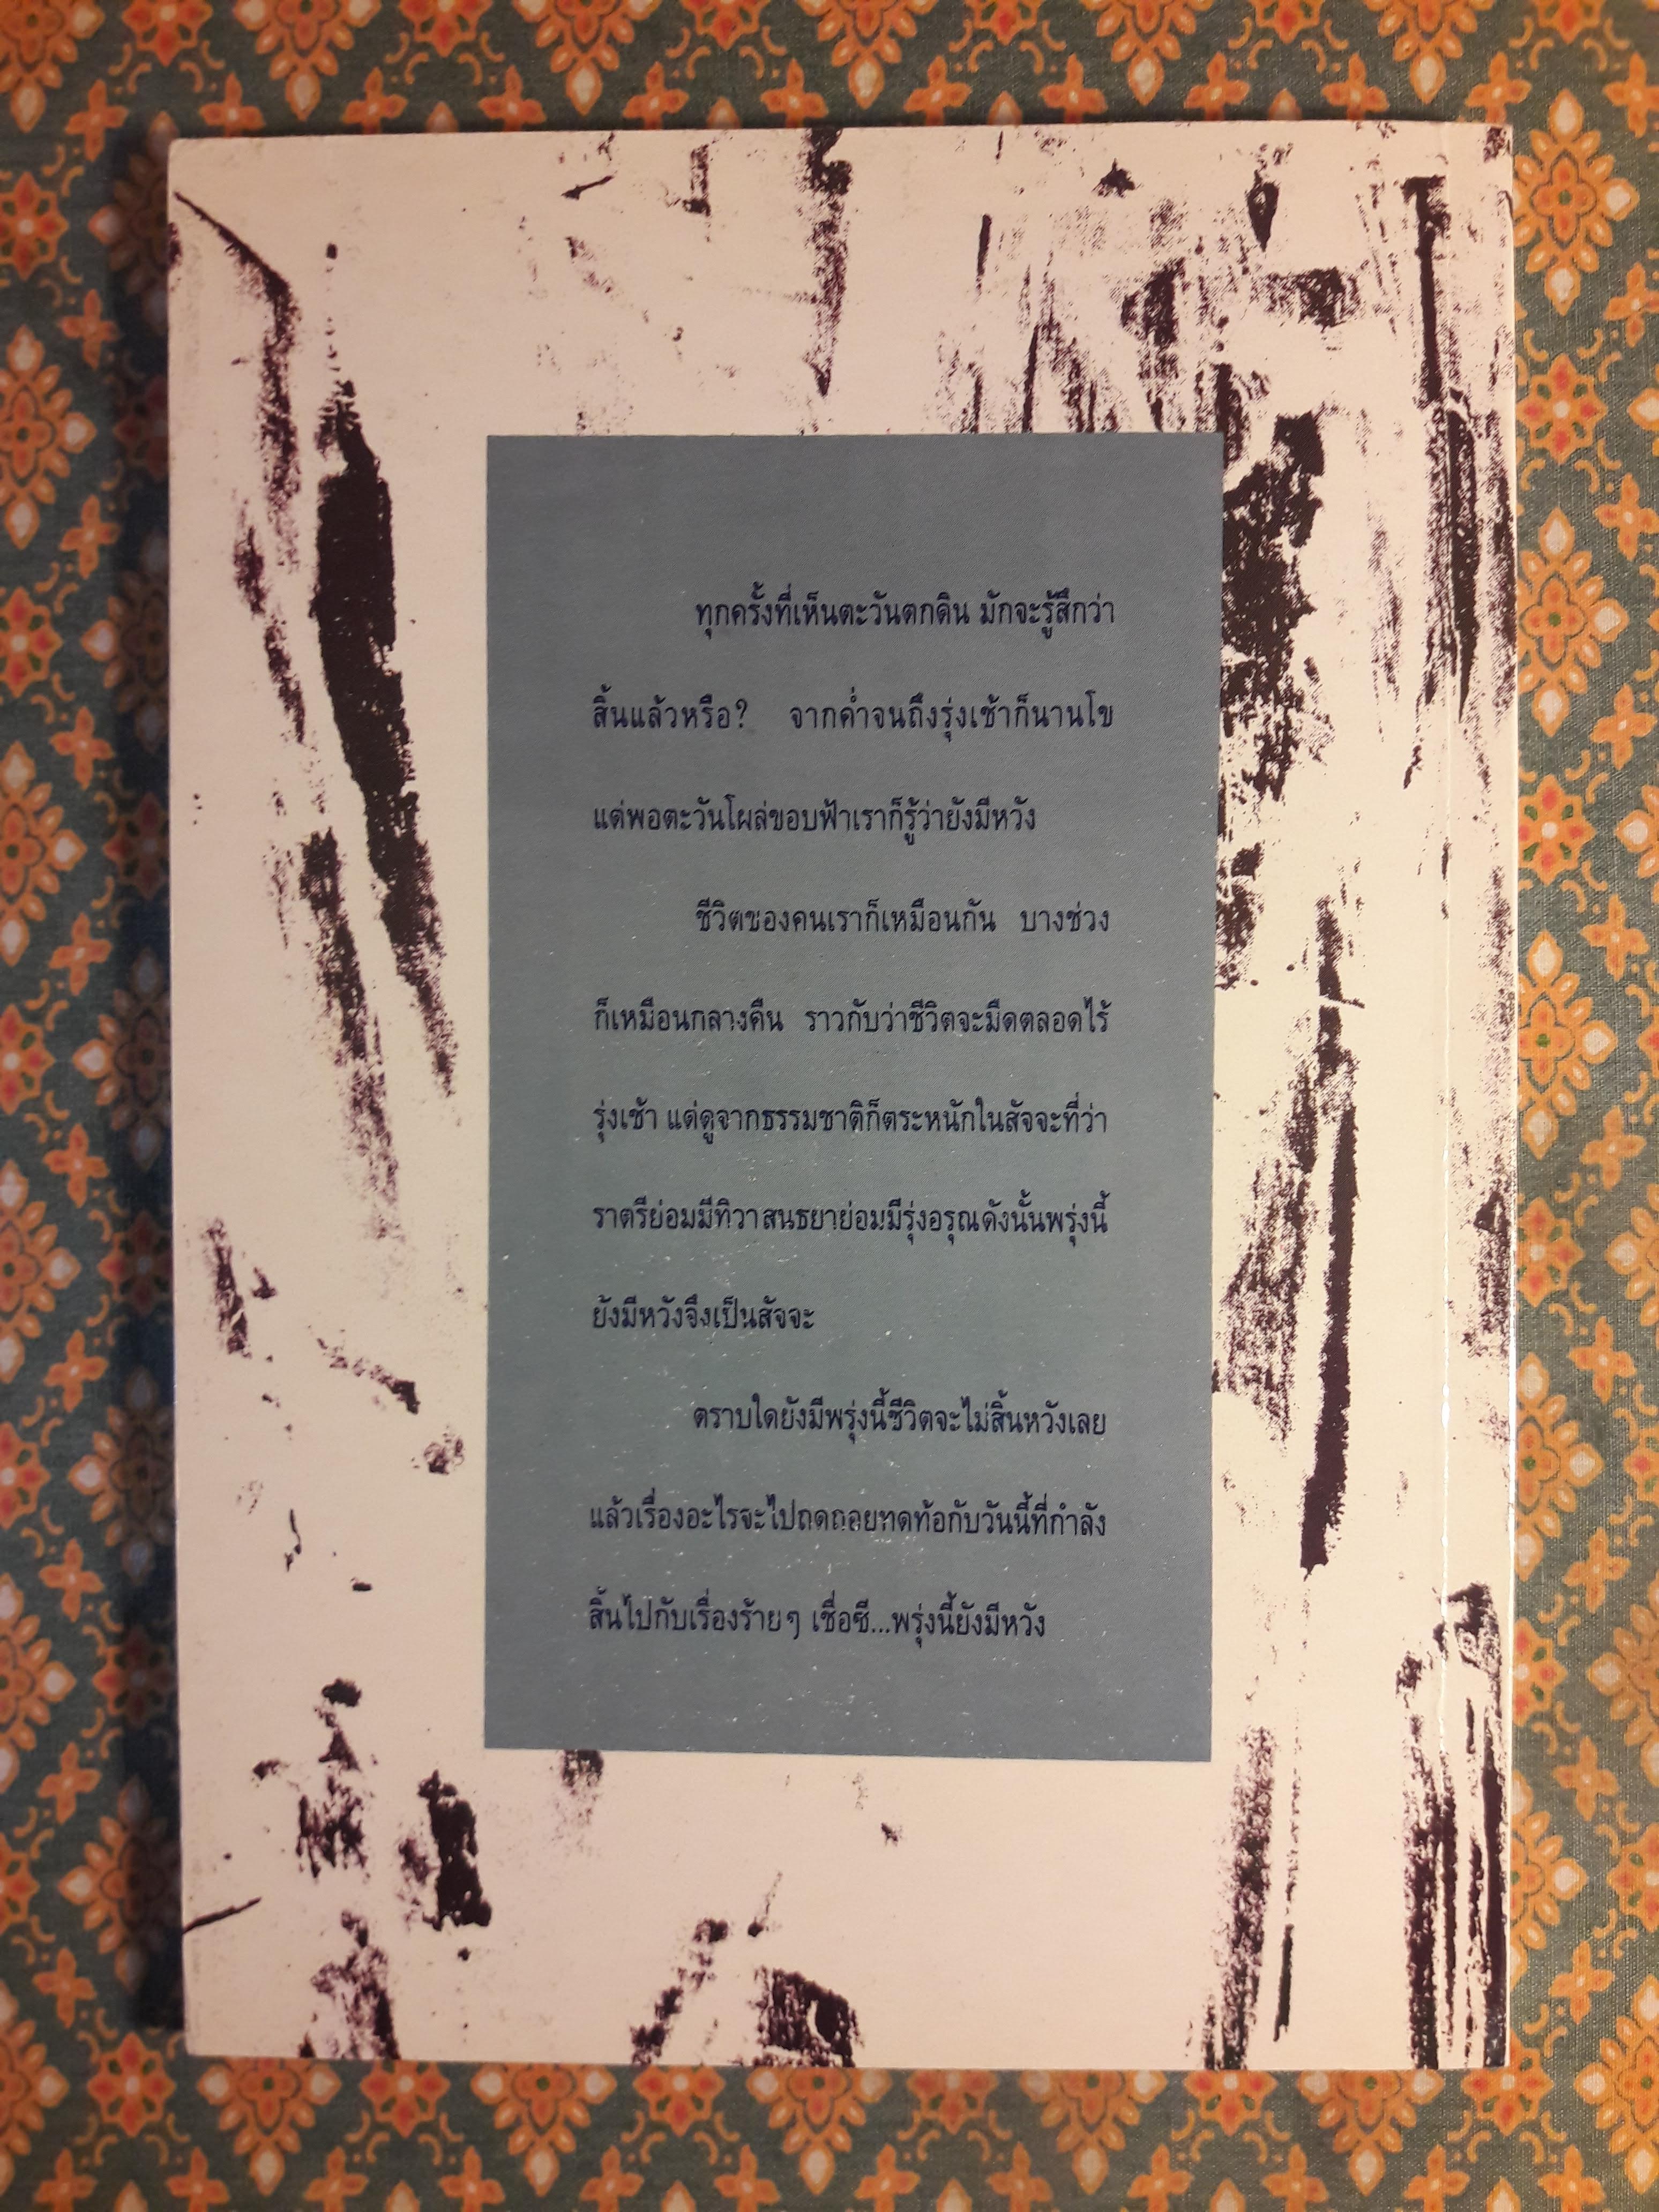 ทุกครั้งที่เห็นตะวันตกดิน มักจะรู้สึกว่า
สิ้นแล้วหรือ? จากค่ำจนถึงรุ่งเช้าก็นานโข
แต่พอตะวันโผล่ขอบฟ้าเราก็รู้ว่ายังมีหวัง
ชีวิตของคนเราก็เหมือนกัน บางช่วง
ก็เหมือนกลางคืน ราวกับว่าชีวิตจะมืดตลอดไร้
รุ่งเช้า แต่ดูจากธรรมชาติก็ตระหนักในสัจจะที่ว่า
ราตรีย่อมมีทิวาสนธยาย่อมมีรุ่งอรุณดังนั้นพรุ่งนี้
ยังมีหวังจึงเป็นสัจจะ
ตราบใดยังมีพรุ่งนี้ชีวิตจะไม่สิ้นหวังเลย
แล้วเรื่องอะไรจะไปถดถอยหดท้อกับวันนี้ที่กำลัง
สิ้นไปกับเรื่องร้ายๆ เชื่อซี...พรุ่งนี้ยังมีหวัง